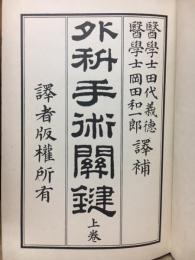 醫學士 田代義德
醫學士 岡田和一郎 譯補
外科手術關鍵 上卷
譯者版權所有